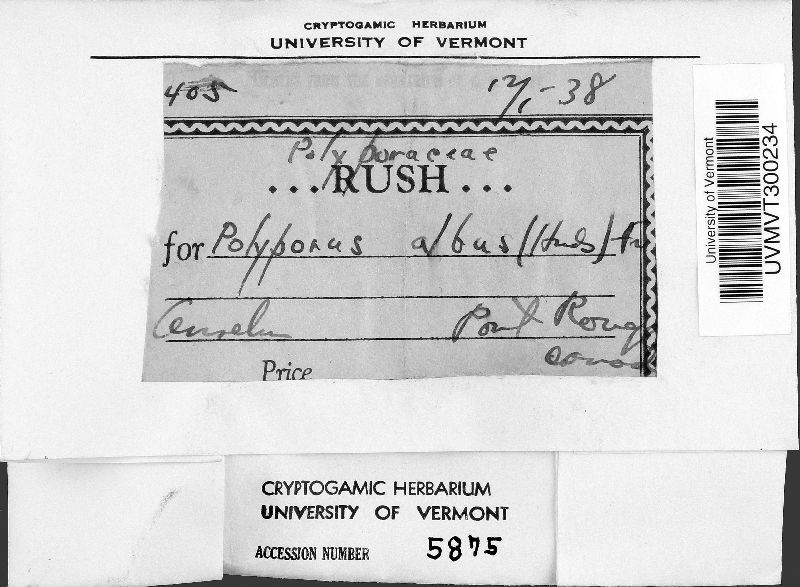 CRYPTOGAMIC HERBARIUM
UNIVERSITY OF VERMONT
405 12/1-38
Polyporaceae
...RUSH...
for Polyporus albus (Huds) Fr
Pont Roug
Price
University of Vermont
UVMVT300234
CRYPTOGAMIC HERBARIUM
UNIVERSITY OF VERMONT
ACCESSION NUMBER 5875